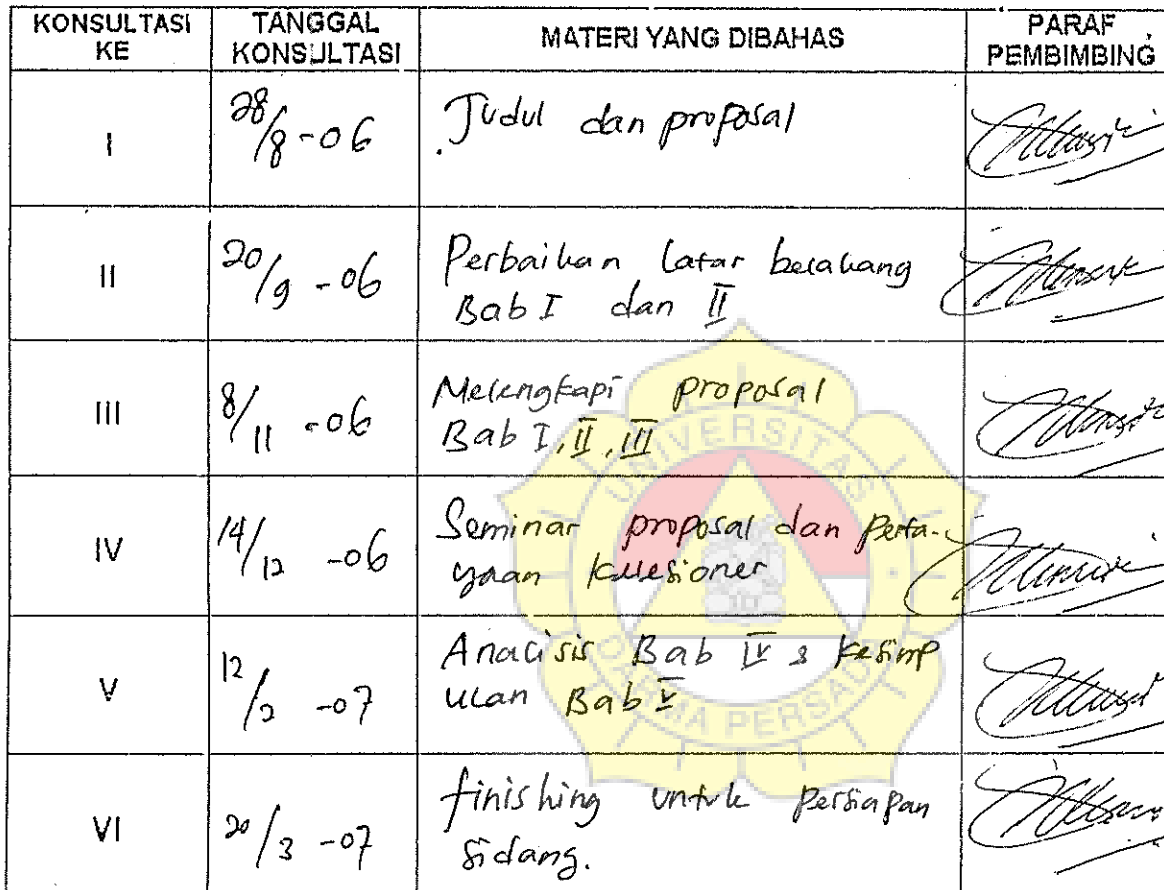 KONSULTASI KE
TANGGAL KONSULTASI
MATERI YANG DIBAHAS
PARAF PEMBIMBING
I
28/8-06
Judul dan proposal
II
20/9-06
Perbaikan latar belakang
Bab I dan II
III
8/11-06
Melengkapi proposal
Bab I, II, III
IV
14/12-06
Seminar proposal dan perta-
yaan kuesioner
V
12/2-07
Analisis Bab IV & kesimp
ulan Bab V
VI
20/3-07
finishing untuk persiapan
sidang.
UNIVERSITAS
DARMA PERSADA